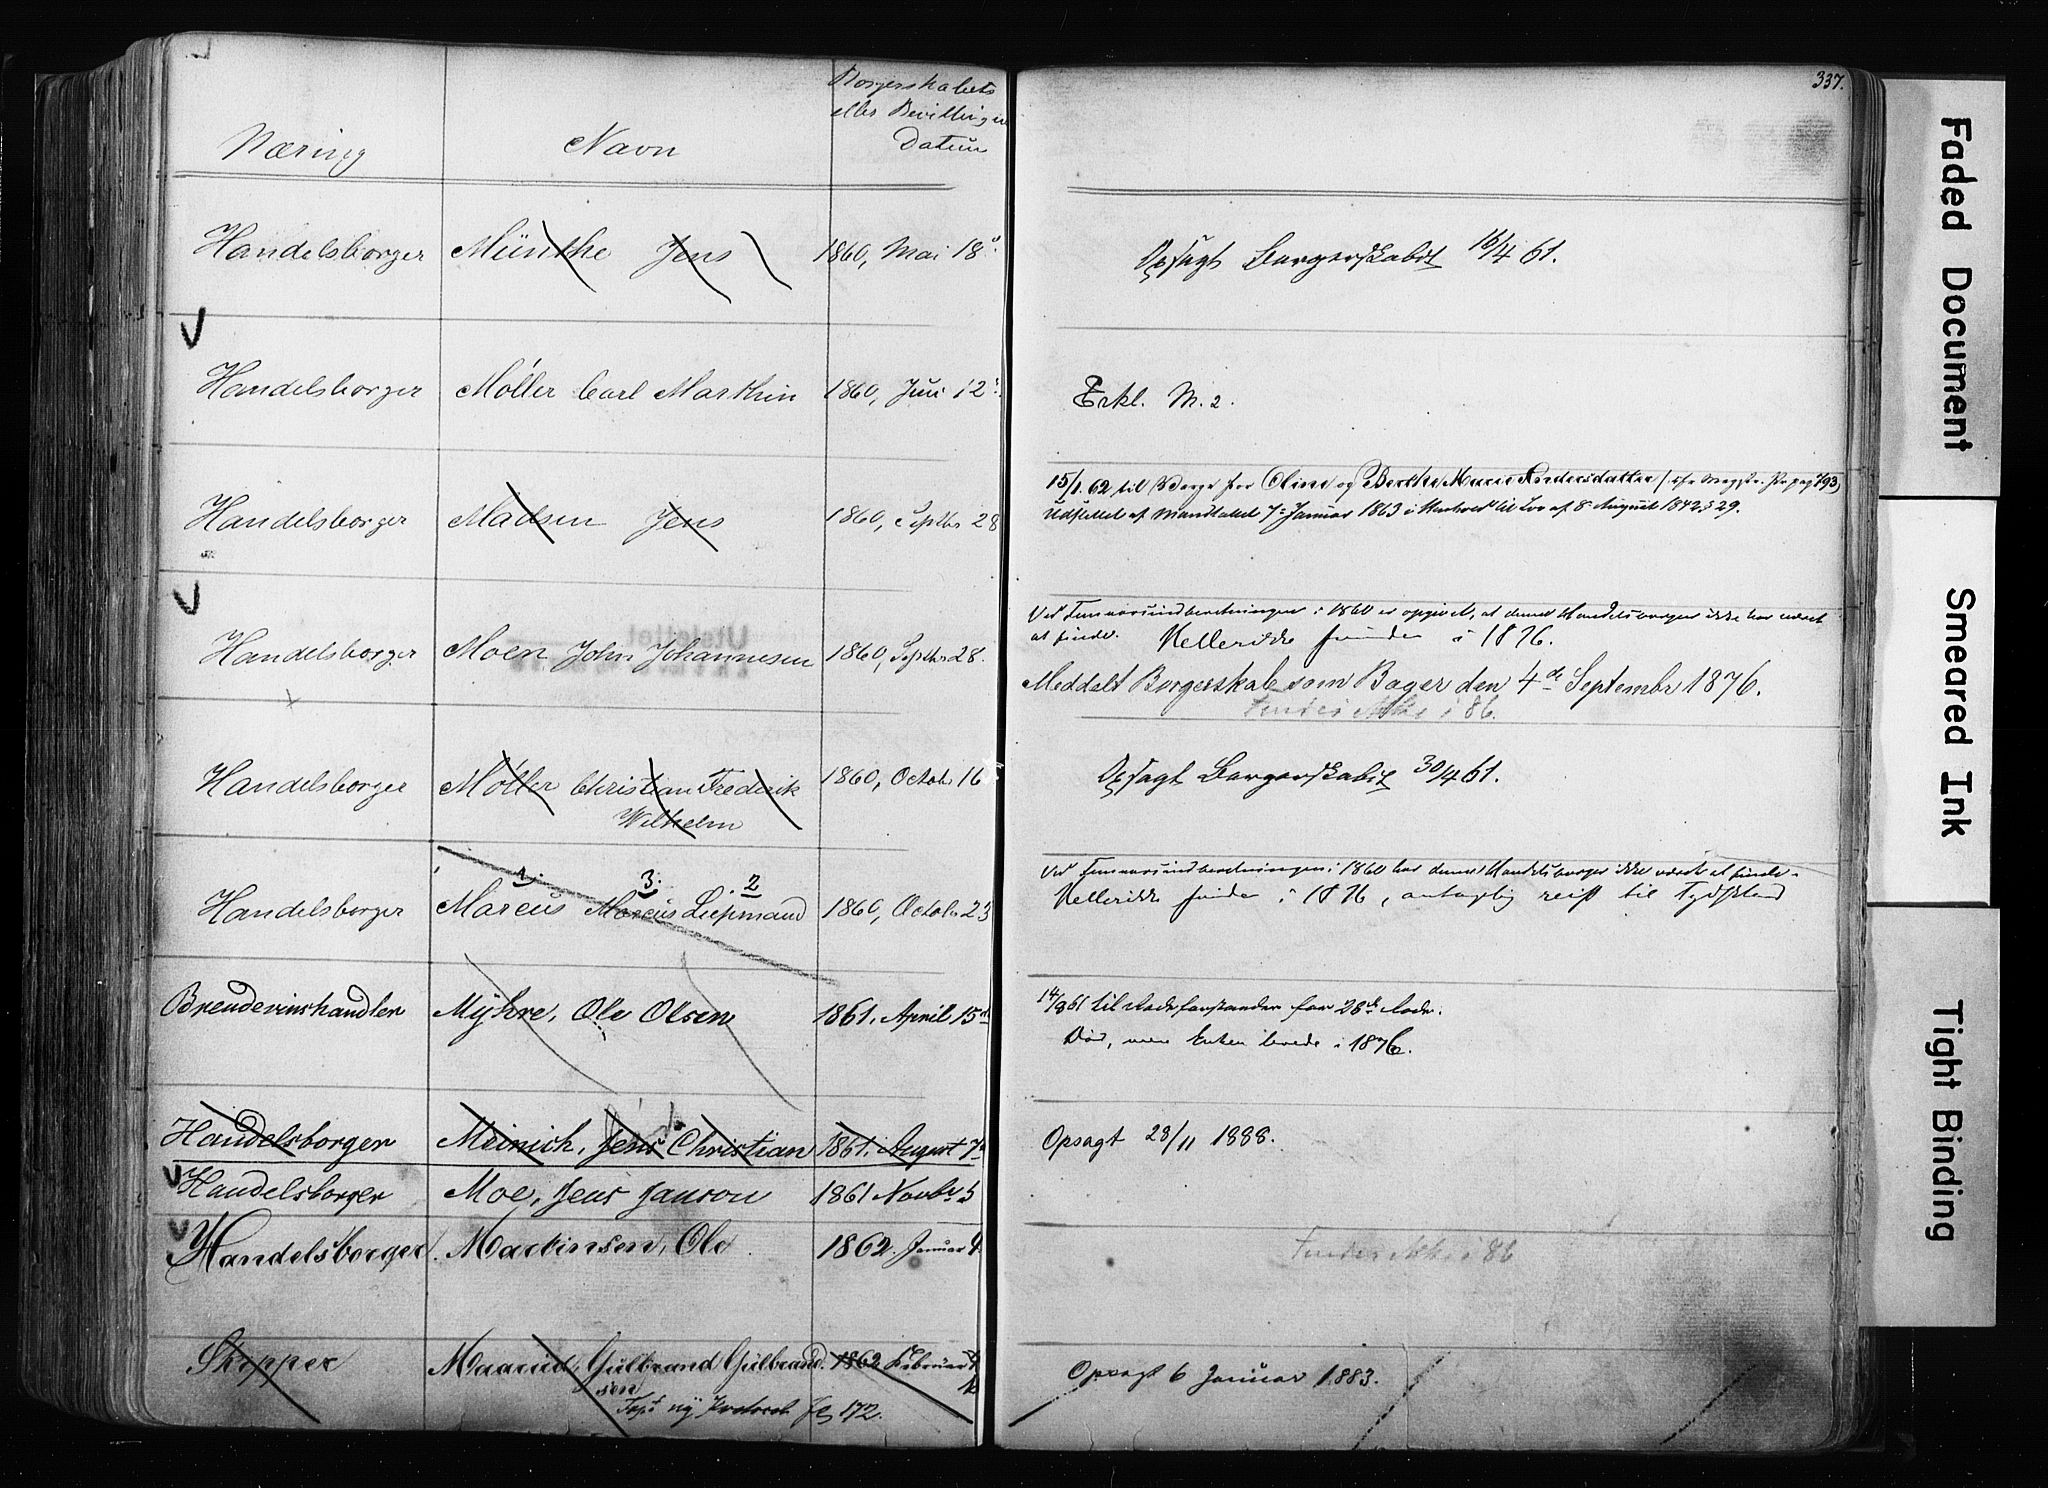 337.
Næring Navn Borgerskabets
eller Bevillingens
Datum
Handelsborger Münthe Jens 1860, Mai 18 Opsagt Borgerskabet 16/4 61.
Handelsborger Møller Carl Marthin 1860, Juni 12 Erkl. M. 2.
15/1. 62 til Værge for Oline og Berthe Marie Andersdatter
Handelsborger Madsen Jens 1860, Septbr 28 Udslettet af Mandtallet 7 Januar 1863 i Henhold til Lov af 8 August 1842 § 29.
Ved Femaarsindberetningen i 1860 er opgivet, at denne Handelsborger ikke har været
at finde. Hellerikke funden i 1876.
Utslettet
Handelsborger Moen John Johannesen 1860, Septbr 28. Meddelt Borgerskab som Bager den 4de September 1876.
Findes ikke i 86.
Handelsborger Møller Christian Frederik 1860, Octob. 16 Opsagt Borgerskabet 30/4 61.
Wilhelm
Ved Femaarsindberetningen i 1860 har denne Handelsborger ikke været at finde.
1. 3. 2
Handelsborger Marcus Marcus Liepmand 1860, Octob. 23 Hellerikke funden i 1876, antagelig reist til Tydskland
Brændevinshandler Myhre, Ole Olsen 1861, April 15de 14/8 61 til Rodeforstander for 28de Rode.
Død, men Enken levede i 1876.
Handelsborger Meinich, Jens Christian 1861, August 7 Opsagt 28/11 1888.
Handelsborger Moe, Jens Janson 1861 Novbr 5
Handelsborger. Martinsen, Ole 1862. Januar 4. Findes ikke i 86
Skipper Maarud, Gulbrand Gulbrand 1862 Februar Opsagt 6 Januar 1883.
sen
ny Protocol Fol 172.
Faded Document
Smeared Ink
Tight Binding